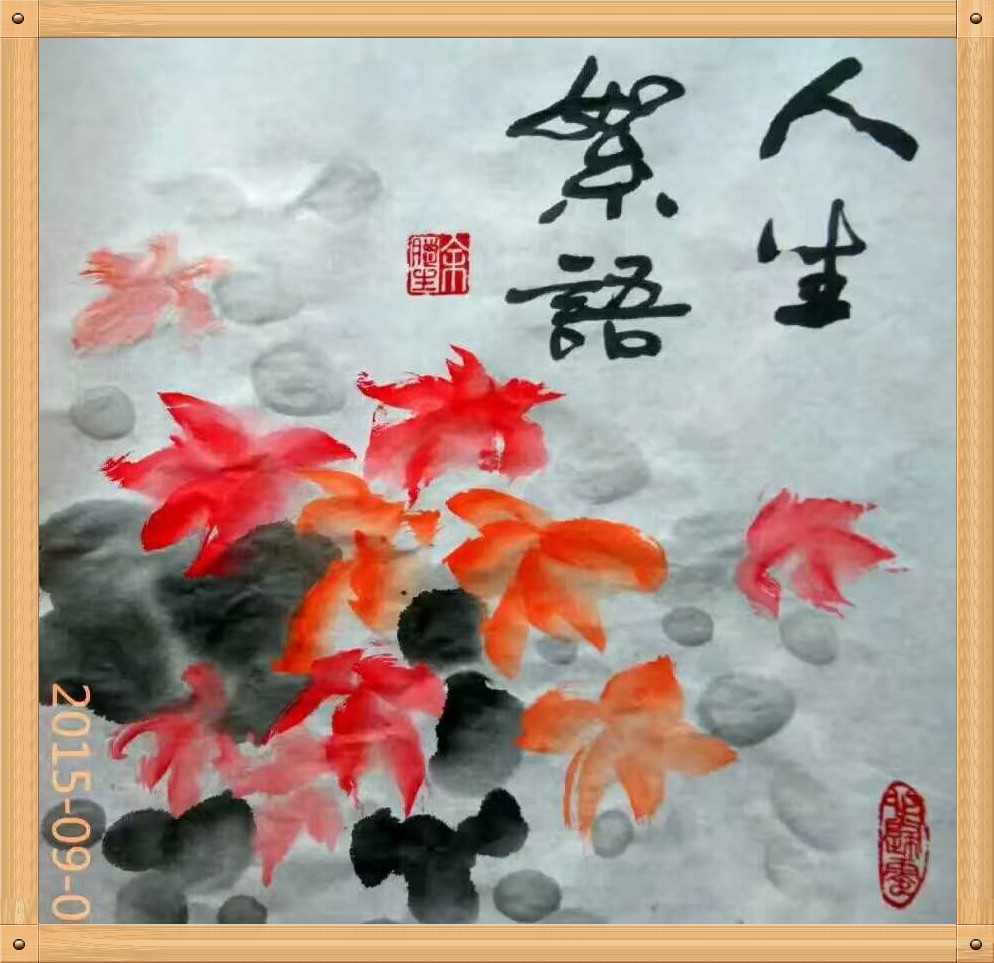 人生
絮語
2015-09-0